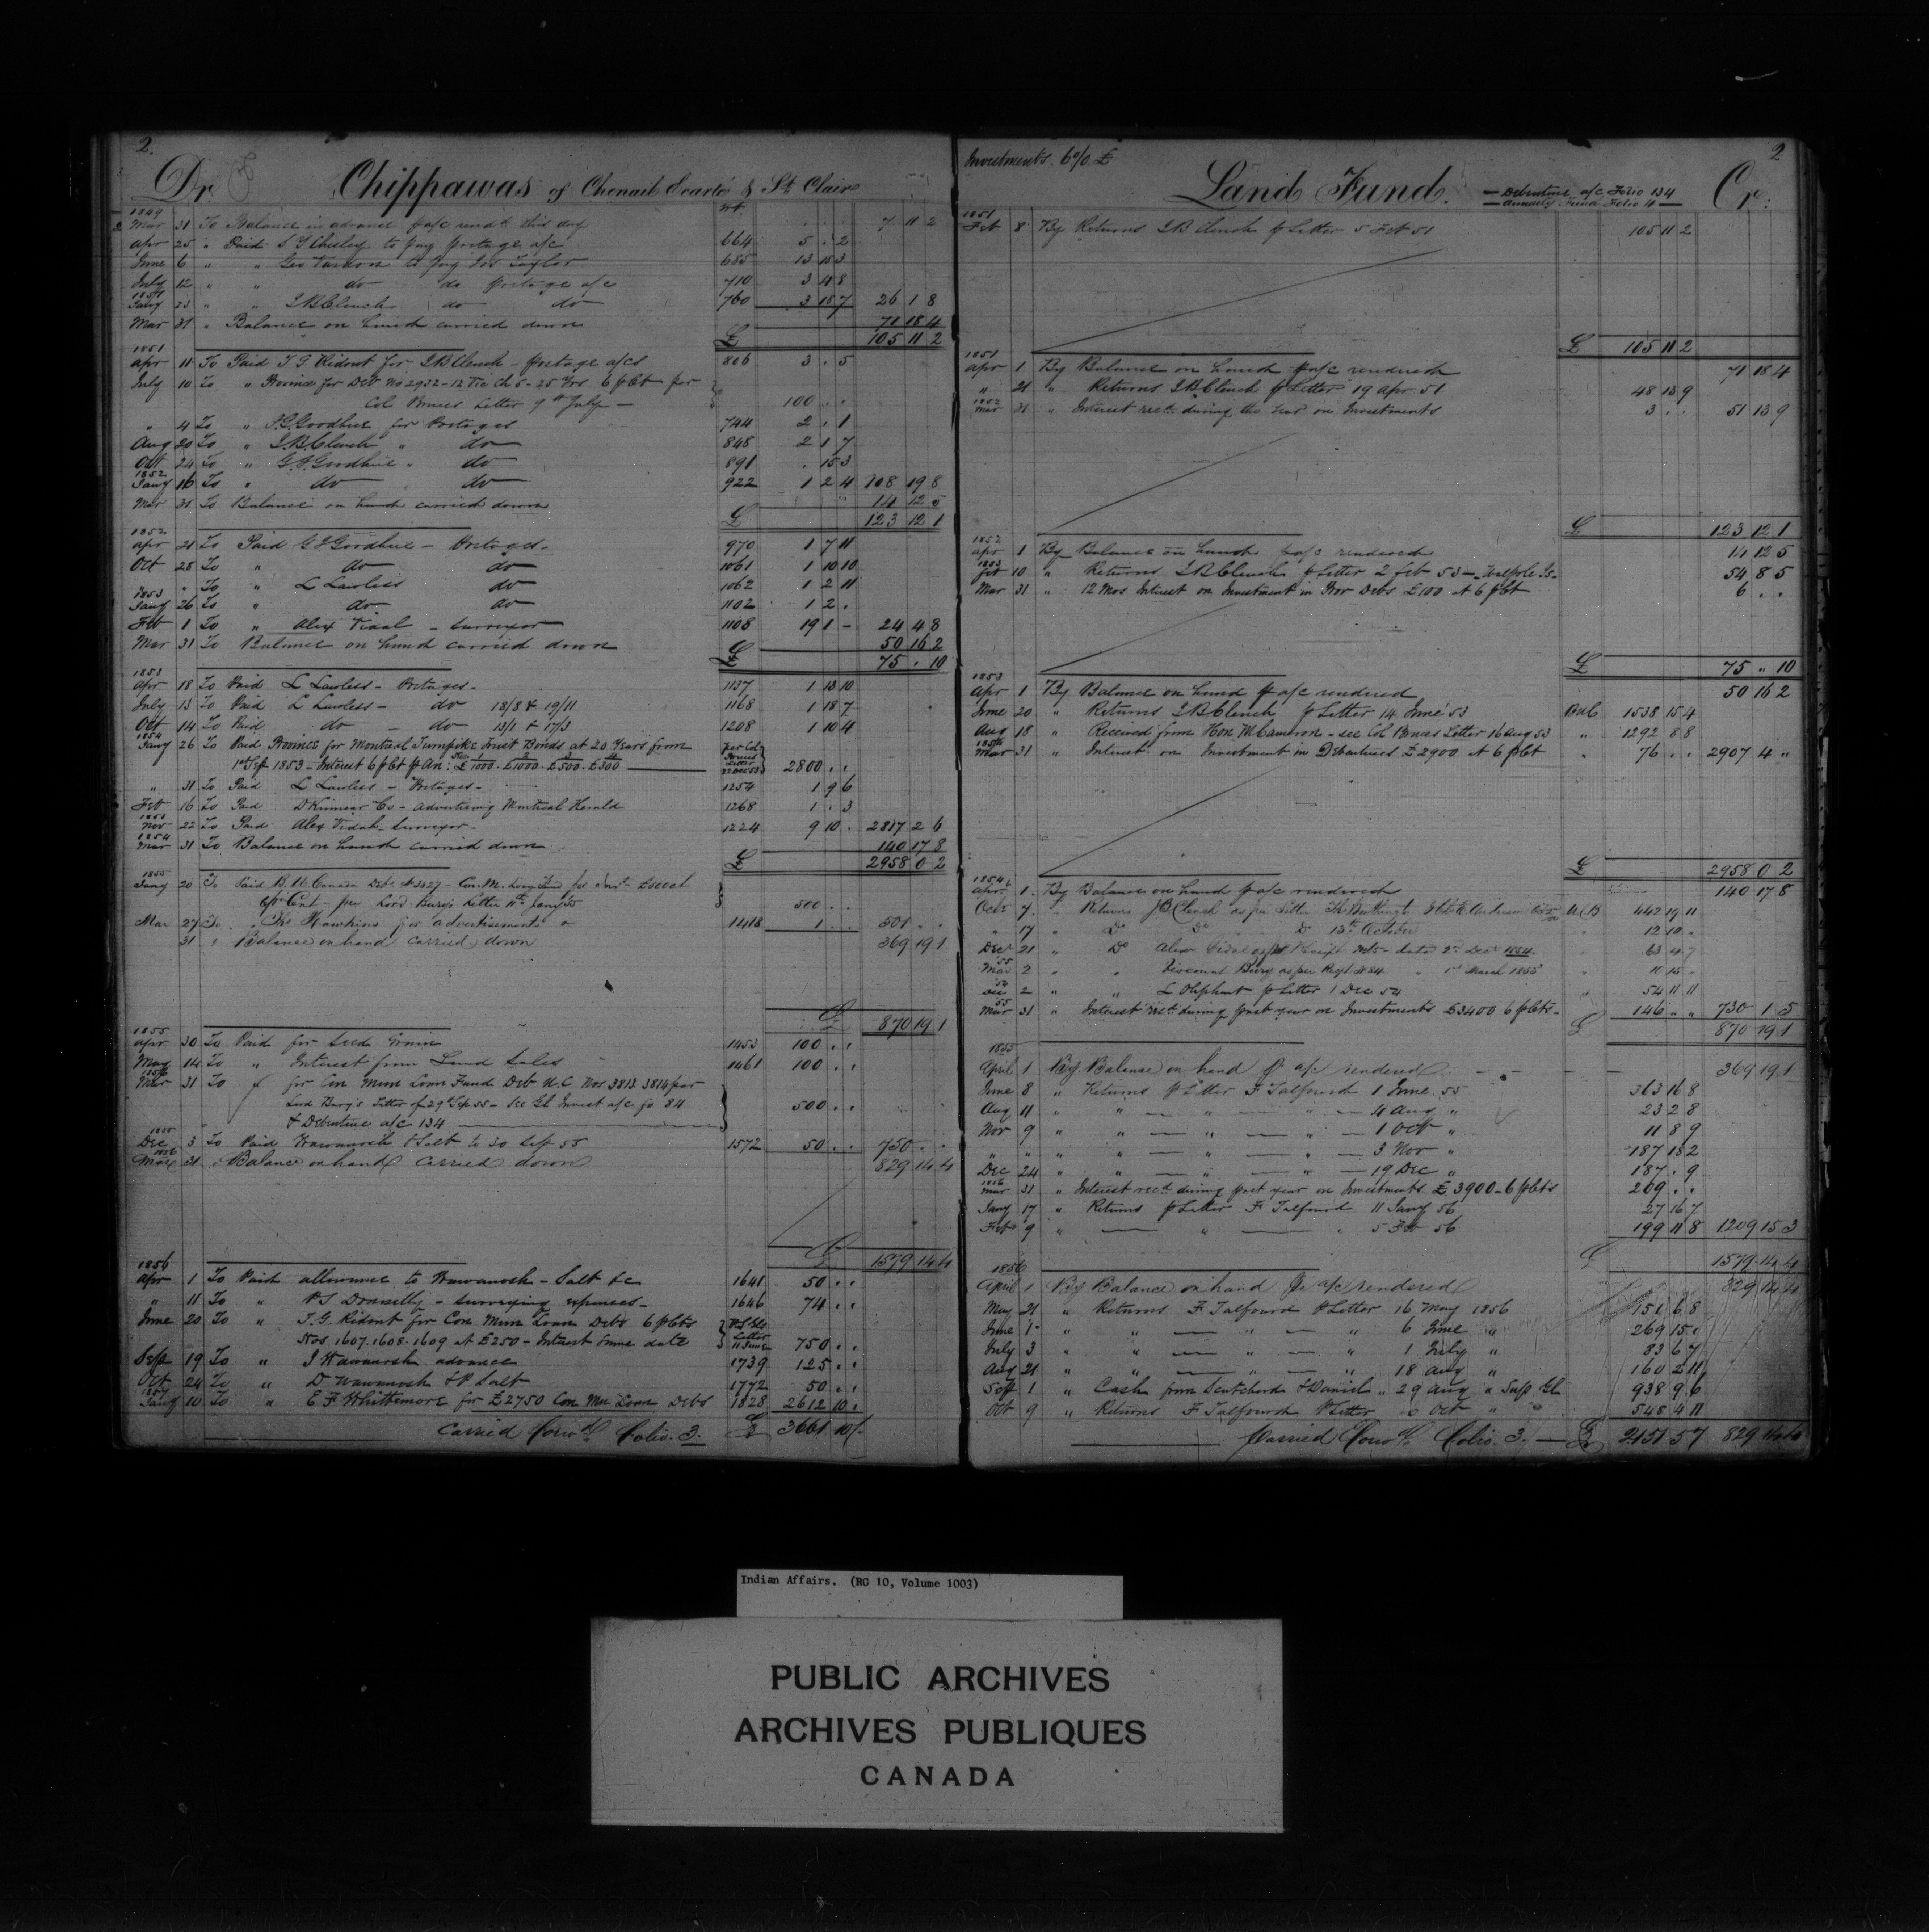 2.
Dr. Chippawas of Chenail Ecarté & St. Clair
1849
Mar 31 To Balance in advance p a/c rendd this day 7 11 2
Apr 25 " Paid S Y Chesley to pay postage a/c 664 5 . 2
June 6 " " Geo Vardon to pay Jos Taylor 685 13 15 3
July 12 " " do do postage a/c 710 3 4 8
1851
Jany 23 " " J B Clench do do 760 3 18 7 26 1 8
Mar 31 " Balance on hand carried down 71 18 4
£ 105 11 2
1851
Apr 11 To Paid T G Ridout for J B Clench - postage a/cs 806 3 . 5
July 10 To " Province for Deb No 2932 - 12 Vic Ch 5 - 25 Yrs 6 p Ct per
Col Bruces Letter 9th July — 100 . .
" 4 To " Goodhue for Postages 744 2 . 1
Aug 20 To " J B Clench " do 848 2 1 7
Oct 24 To " Goodhue " do 891 . 15 3
1852
Jany 16 To " do do 922 1 2 4 108 19 8
Mar 31 To Balance on hand carried down 14 12 5
£ 123 12 1
1852
Apr 21 To Paid Goodhue - Postages - 970 1 7 11
Oct 28 To " do do 1061 1 10 10
" " To " L Lawless do 1062 1 2 11
1853
Jany 26 To " do do 1102 1 2 .
Feb 1 To " Alex Vidal - Surveyor 1108 19 1 - 24 4 8
Mar 31 To Balance on hand carried down 50 16 2
£ 75 . 10
1853
Apr 18 To Paid L Lawless - Postages - 1137 1 13 10
July 13 To Paid L Lawless - do 18/8 & 19/11 1168 1 18 7
Oct 14 To Paid do - do 13/1 & 17/3 1208 1 10 4
1854
Jany 26 To Paid Province for Montreal Turnpike Trust Bonds at 20 Years from
1st Sep 1853 - Interest 6 p Ct p An: £1000. £1000. £500. £300 — per Col Bruces Letter 22 Dec 53 2800 . .
" 31 To Paid L Lawless - Postages - 1254 1 9 6
Feb 16 To Paid D Kinnear & Co - Advertising Montreal Herald 1268 1 . 3
1853
Nov 22 To Paid Alex Vidal - Surveyor - 1224 9 10 . 2817 2 6
1854
Mar 31 To Balance on hand carried down 140 17 8
£ 2958 0 2
1855
Jany 20 To Paid U. Canada Deb. Con. M. Loan Fund for
6 p Cent - per Lord Bury's Letter 11th Jany 55 500 . .
Mar 27 To " Hawkins for advertisements 1418 1 . . 501 . .
31 " Balance on hand carried down 369 19 1
£ 870 19 1
1855
Apr 30 To Paid for Seed Grain 1453 100 . .
May 14 To " Interest from Land Sales 1461 100 . .
1856
Mar 31 To for Con Mun Loan Fund Deb U.C. Nos 3813 3814 per
Lord Bury's Letter of 29 Sep 55 - See Gl Invest a/c fo 84
& Debenture a/c 134 — 500 . .
1855
Dec 3 To Paid Wawanosh & Salt to 30 Sep 55 1572 50 . . 750 - .
1856
Mar 31 " Balance on hand carried down 829 14 4
£ 1579 14 4
1856
Apr 1 To Paid allowance to Wawanosh - Salt &c 1641 50 . .
" 11 To " Donnelly - surveying expenses - 1646 74 . .
June 20 To " T. G. Ridout for Con Mun Loan Debs 6 p Cts
Nos. 1607. 1608. 1609 at £250 - Interest from date Letter 11 June 750 . .
Sep 19 To " J Wawanosh advance 1739 125 . .
Oct 24 To " D Wawanosh & P Salt 1772 50 . .
1857
Jany 10 To " E F Whittemore for £2750 Con Mun Loan Debs 1828 2612 10 .
Carried Forwd. Folio. 3. £ 3661 10 /.
Investments. 6 o/o. £
2
Land Fund. Cr:
— Debenture a/c Folio 134
— Annuity Fund Folio 4 —
1851
Feb 8 By Returns J B Clench p Letter 5 Feb 51 105 11 2
£ 105 11 2
1851
Apr 1 By Balance on hand p a/c rendered 71 18 4
" 21 " Returns J B Clench p Letter 19 Apr 51 48 13 9
1852
Mar 31 " Interest recd. during the Year on Investments 3 . . 51 13 9
£ 123 12 1
1852
Apr 1 By Balance on hand p a/c rendered 14 12 5
1853
Feb 10 " Returns J B Clench p Letter 2 Feb 53 - Walpole Is - 54 8 5
Mar 31 " 12 Mos Interest on Investment in Prov Debs £100 at 6 p Ct 6 . .
£ 75 " 10
1853
Apr 1 By Balance on hand p a/c rendered 50 16 2
June 20 " Returns J B Clench p Letter 14 June 53 1538 15 4
Aug 18 " Received from Hon M Cameron - see Col Bruces Letter 16 Aug 53 " 1292 8 8
1854
Mar 31 " Interest on Investment in Debentures £2900 at 6 p Ct " 76 . . 2907 4 "
£ 2958 0 2
1854
Apr 1 By Balance on hand p a/c rendered 140 17 8
Octr 7 " Returns J B Clench as per Letter 442 19 11
" 17 " Do Do Do 13th October 12 10 "
Decr 21 " Do Alexr Vidal as per Receipt dated 2d Decr 1854. 63 4 7
55
Mar 2 " " Viscount Bury as per Rect No 84 " 1st March 1855 10 15 "
54
Dec 2 " " L Oliphant p Letter 1 Dec 54 54 11 11
55
Mar 31 " Interest recd. during past year on Investments £3400 6 p Cts - 146 " " 730 1 5
£ 870 19 1
1855
April 1 By Balance on hand p a/c rendered 369 19 1
June 8 " Returns p Letter F Talfourd 1 June 55 363 16 8
Aug 11 " " — " — " — 4 Aug " 23 2 8
Nov 9 " " — " — " — 1 Oct " 11 8 9
" " " " — " — " — 3 Nov " 187 18 2
Dec 24 " " — " — " — 19 Dec " 187 . 9
1856
Mar 31 " Interest recd. during past year on Investments £3900 - 6 p Cts 209 . .
Jany 17 " Returns p Letter F Talfourd 11 Jany 56 27 16 7
Feb 9 " — " — " 5 Feb 56 199 11 8 1209 15 3
£ 1579 14 4
1856
April 1 By Balance on hand pr a/c rendered 829 14 4
May 21 " Returns F Talfourd p Letter 16 May 1856 151 6 8
June 1 " " — " — " 6 June " 269 15 .
July 3 " " — " — " 1 July " 83 6 7
Aug 21 " " — " — " 18 Aug " 160 2 11
Sep 1 " Cash from & Daniel " 29 Aug " 938 9 6
Oct 9 " Returns F Talfourd p Letter 6 Oct " " 548 4 11
Carried Forwd. Folio. 3. — £ 2151 5 7 829 14 4
Indian Affairs. (RG 10, Volume 1003)
PUBLIC ARCHIVES
ARCHIVES PUBLIQUES
CANADA